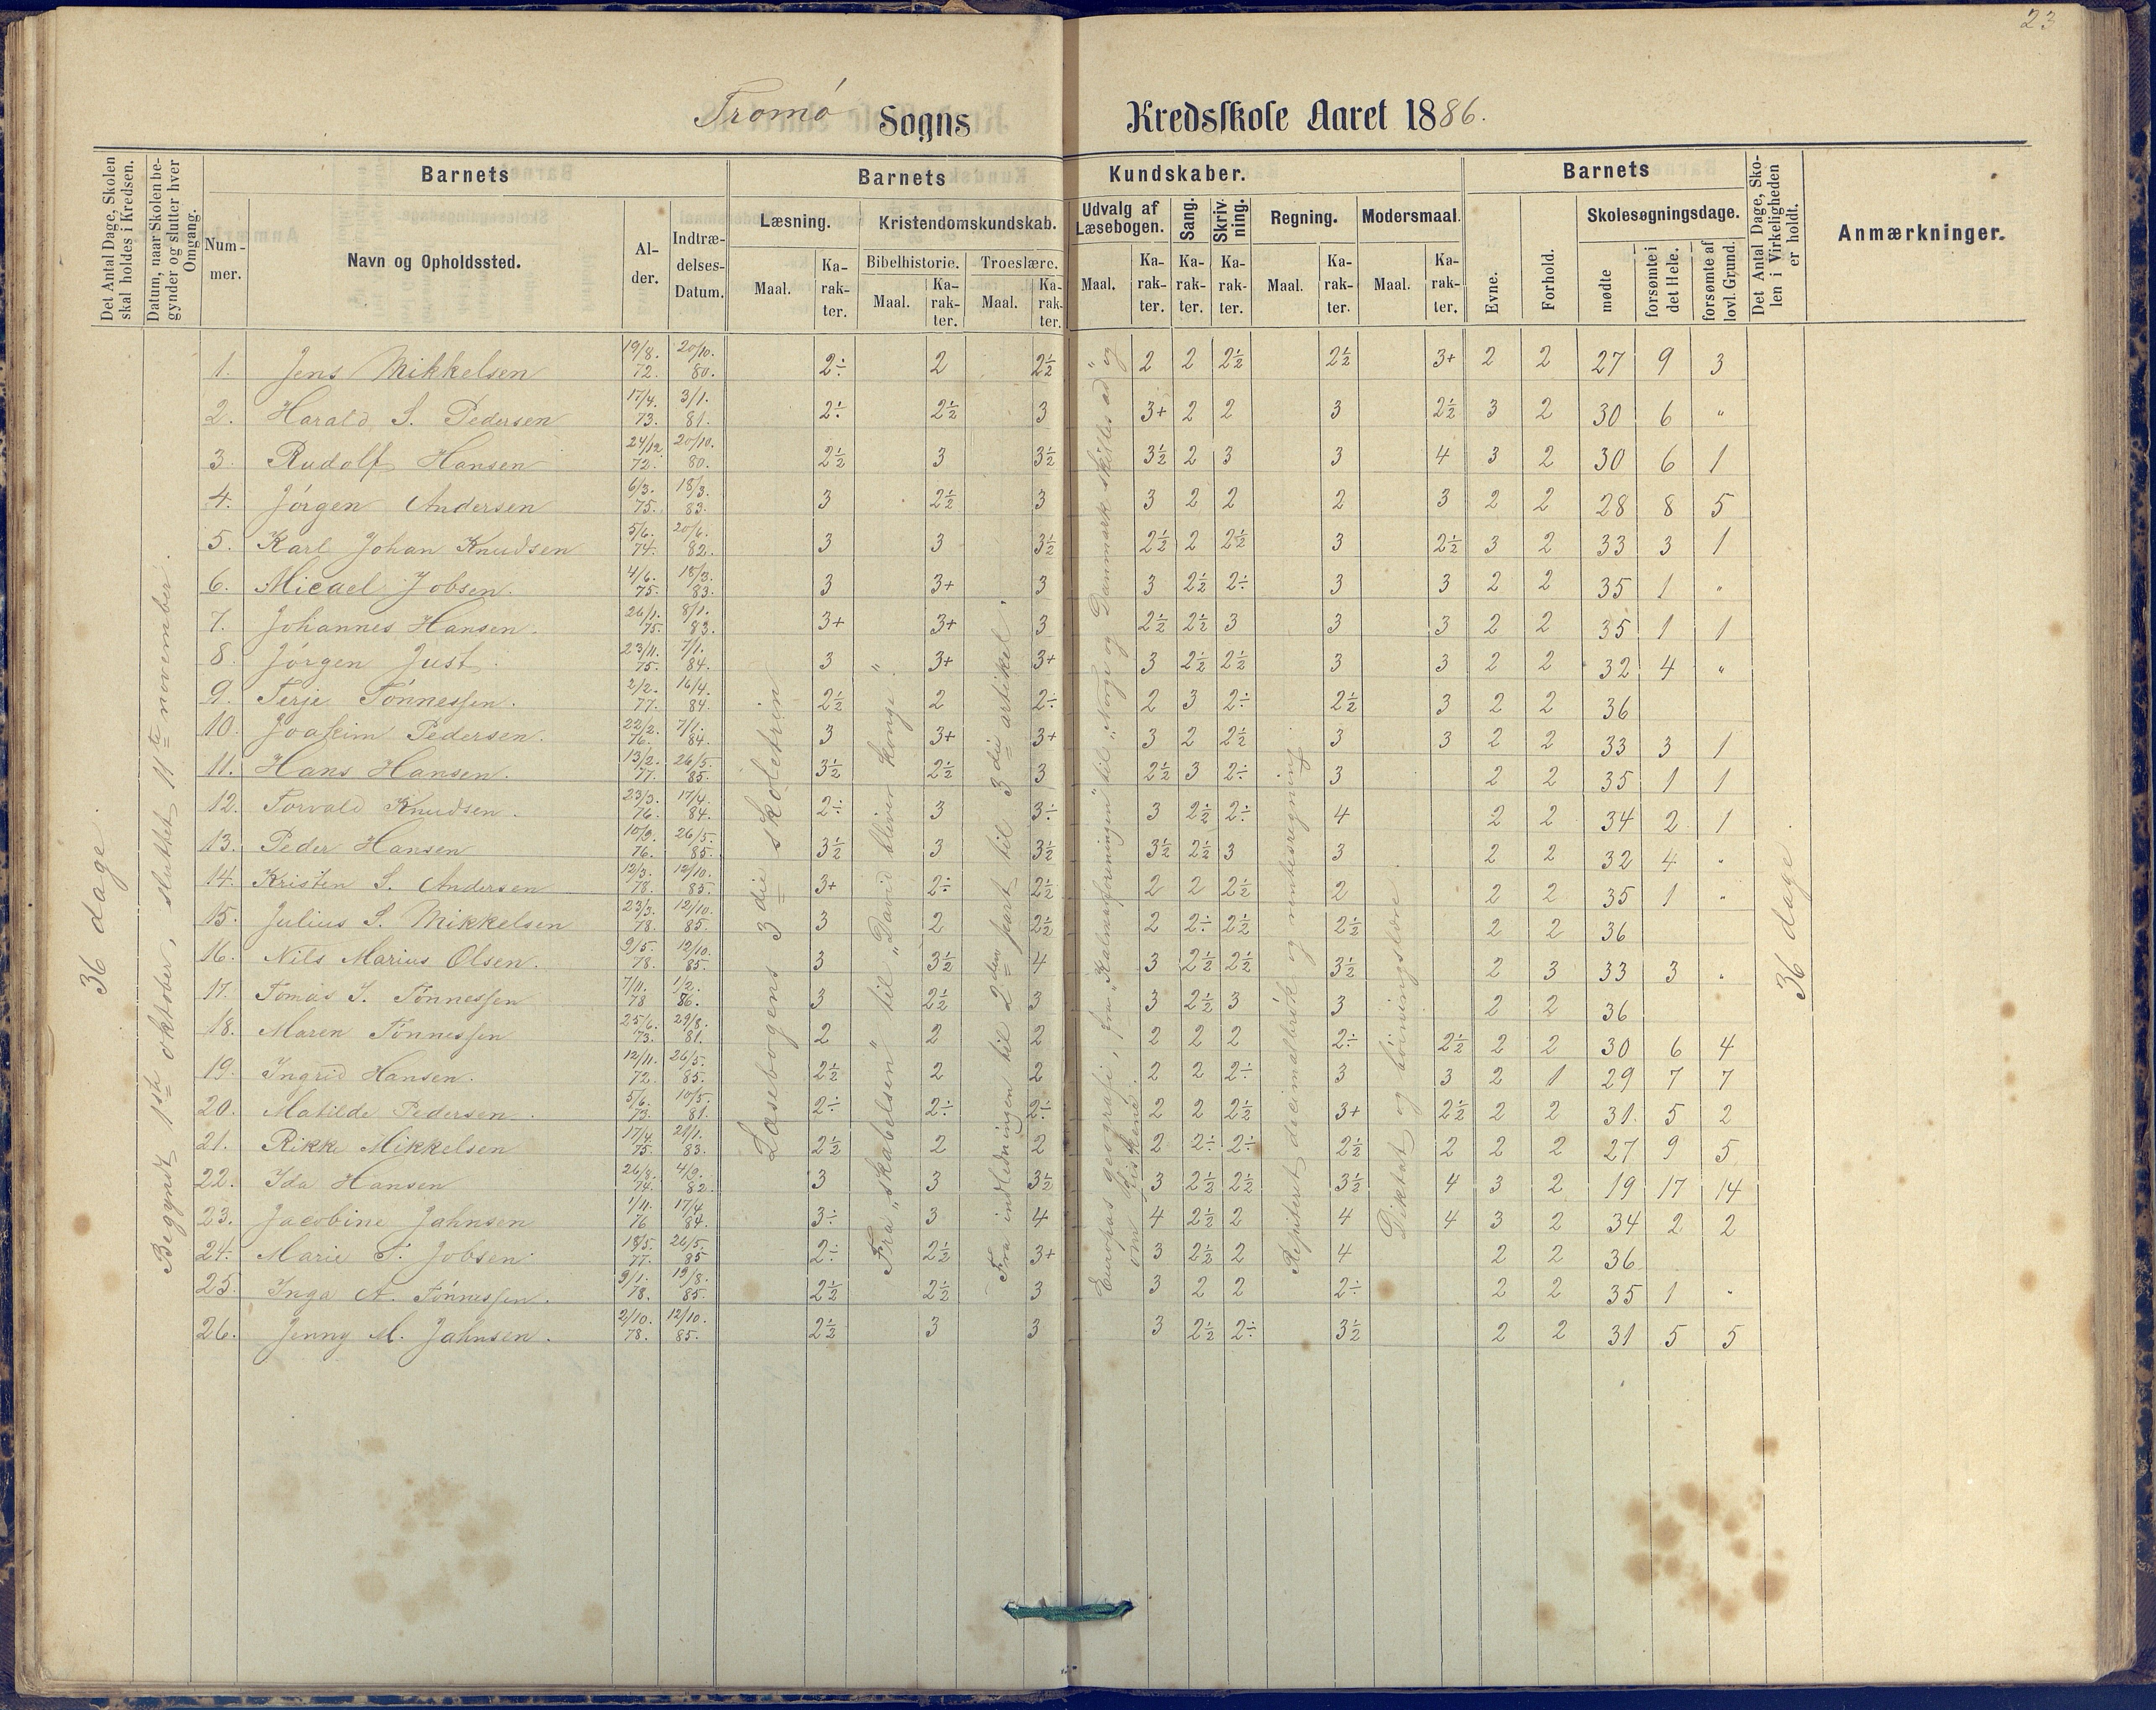 23
Tromø Sogns Kredsskole Aaret 1886.
Det Antal Dage, Skolen skal holdes i Kredsen.
Datum, naar Skolen begynder og slutter hver Omgang.
Barnets
Nummer.
Navn og Opholdssted.
Alder.
Indtrædelses-Datum.
Barnets Kundskaber.
Læsning.
Maal.
Karakter.
Kristendomskundskab.
Bibelhistorie.
Maal.
Karakter.
Troeslære.
Maal.
Karakter.
Udvalg af Læsebogen.
Maal.
Karakter.
Sang.
Karakter.
Skrivning.
Karakter.
Regning.
Maal.
Karakter.
Modersmaal.
Maal.
Karakter.
Barnets
Evne.
Forhold.
Skolesøgningsdage.
mødte
forsømte i det Hele.
forsømte af lovl. Grund.
Det Antal Dage, Skolen i Virkeligheden er holdt.
Anmærkninger.
36 dage.
Begyndt 1ste oktober, sluttet 11te november.
Læsebogens 3die skoletrin
Fra "skabelsen" til "David bliver konge".
Fra indledningen til 2den part til 3die artikel.
Europas geografi, fra "Kalmarforeningen" til "Norge og Danmark skilles ad" og om fiskene.
Repiteret decimalbrøk og rentesregning.
Diktat og bøiningslære
36 dage.
1. Jens Mikkelsen 19/8. 72. 20/10. 80. 2÷ 2 2½ 2 2 2½ 2½ 3+ 2 2 27 9 3
2. Harald S. Pedersen 17/4. 73. 3/1. 81. 2÷ 2½ 3 3+ 2 2 3 2½ 3 2 30 6 "
3. Rudolf Hansen 24/12. 72. 20/10. 80. 2½ 3 3½ 3½ 2 3 3 4 3 2 30 6 1
4. Jørgen Andersen 6/3. 75. 18/3. 83. 3 2½ 3 3 2 2 2 3 2 2 28 8 5
5. Karl Johan Knudsen 5/6. 74. 20/6. 82. 3 3 3½ 2½ 2 2½ 3 2½ 3 2 33 3 1
6. Micael Jobsen. 4/6. 75. 18/3. 83. 3 3+ 3 3 2½ 2÷ 3 3 2 2 35 1 "
7. Johannes Hansen. 26/1. 75. 8/1. 83. 3+ 3+ 3 2½ 2½ 3 3 3 2 2 35 1 1
8. Jørgen Just. 23/11. 75. 7/1. 84. 3 3+ 3+ 3 2½ 2½ 3 3 2 2 32 4 "
9. Terje Tønnessen. 2/2. 77. 16/4. 84. 2½ 2 2÷ 2 3 2÷ 2½ 3 2 2 36
10. Joakim Pedersen. 22/2. 76. 7/1. 84. 3 3+ 3+ 3 2 2½ 3 3 2 2 33 3 1
11. Hans Hansen. 13/2. 77. 26/5. 85. 3½ 2½ 3 2½ 3 2÷ 3 2 2 35 1 1
12. Torvald Knudsen. 23/3. 76. 17/4. 84. 2÷ 3 3÷ 3 2½ 2÷ 4 2 2 34 2 1
13. Peder Hansen 10/9. 76. 26/5. 85. 3½ 3 3½ 3½ 2½ 3 3 2 2 32 4 "
14. Kristen S. Andersen 12/3. 78. 12/10. 85. 3+ 2÷ 2½ 2 2 2½ 2 2 2 35 1 "
15. Julius S. Mikkelsen 23/3. 78. 12/10. 85. 3 2 2½ 2 2÷ 2½ 2½ 2 2 36
16. Nils Marius Olsen. 9/5. 78. 12/10. 85. 3 3½ 4 3 2½ 2½ 3½ 2 3 33 3 "
17. Tomas J. Tønnessen 7/11. 78 1/2. 86. 3 2½ 3 3 2½ 3 3 2 2 36
18. Maren Tønnessen 25/6. 73. 29/8. 81. 2 2 2 2 2 2 2÷ 2½ 2 2 30 6 4
19. Ingrid Hansen. 12/11. 72. 26/5. 85. 2½ 2 2 2 2 2÷ 3 3 2 1 29 7 7
20. Matilde Pedersen. 5/6. 73. 10/5. 81. 2÷ 2÷ 2÷ 2 2 2½ 3+ 2½ 2 2 31. 5 2
21. Rikke Mikkelsen 17/4. 75. 21/1. 83. 2½ 2 2 2 2÷ 2÷ 2½ 2 2 2 27 9 5
22. Ida Hansen 26/8. 74. 4/9. 82. 3 3 3½ 3 2½ 2½ 3½ 4 3 2 19 17 14
23. Jacobine Jahnsen 1/11. 76 17/4. 84. 3÷ 3 4 4 2½ 2 4 4 3 2 34 2 2
24. Marie T. Jobsen 18/5. 77. 26/5. 85 2÷ 2½ 3+ 3 2½ 2 4 2 2 36
25. Inga A. Tønnessen. 9/1. 78. 19/8. 85. 2½ 2½ 3 3 2 2 2÷ 2 2 35 1 "
26. Jenny M. Jahnsen. 2/10. 78. 12/10. 85. 2½ 3 3 3 2½ 2÷ 3½ 2 2 31 5 5